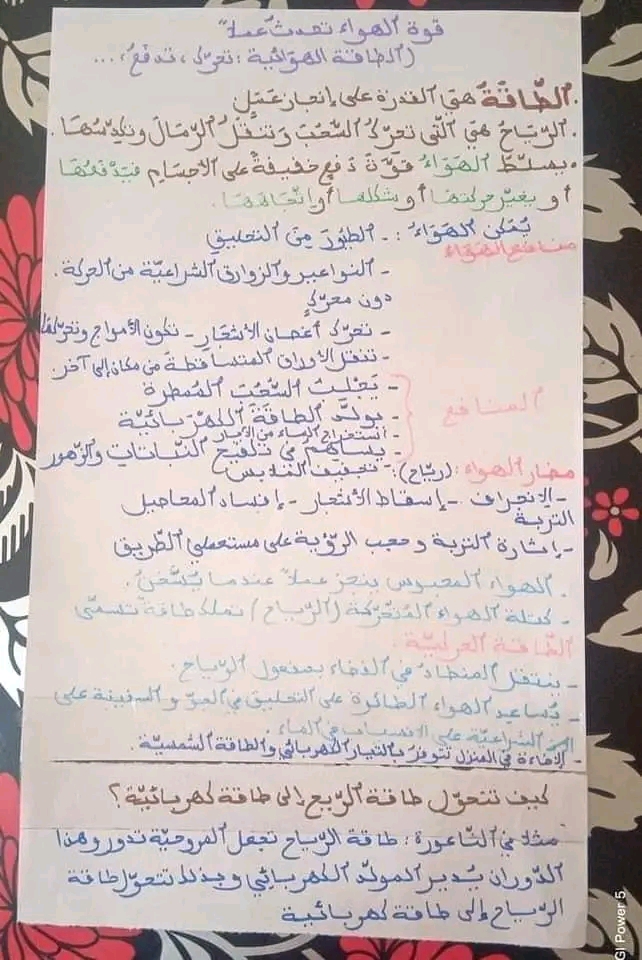 قوة الهواء تحدث عملا"
(الطاقة الهوائية: تحرك، تدفع، ...
. الطّاقة هي القدرة على إنجاز عمل
. الرّياح هي الّتي تحرك السّحب وتنقل الرّمال وتكدّسها.
• يسلّط الهواء قوّة دفع خفيفة على الأجسام فيدفعها
أو يغيّر حركتها أو شكلها أو اتّجاهها.
يُمكن الهواء: - الطيور من التحليق
منافع الهواء
- النواعير والزوارق الشراعيّة من الحركة.
دون محرّك
- تحرك أغصان الأشجار - تكون الأمواج وتحركها
- تنقل الأوراق المتساقطة من مكان إلى آخر.
- يجلب السّحب الممطرة
المنافع
- يولّد الطّاقة الكهربائيّة
- استخراج الماء من الآبار
- يساهم في تلقيح النّباتات والزّهور
مضار الهواء: (ريّاح): - تجفيف الملابس
- الانجراف - إسقاط الأشجار - إفساد المحاصيل
التربة
- إثارة التربة وحجب الرّؤية على مستعملي الطّريق
. الهواء المحبوس ينجز عملا عندما يُسخّن.
- كتلة الهواء المتحرّكة (الرّياح) تملك طاقة تسمّى
الطّاقة الحركيّة.
- ينتقل المنطاد في الفضاء بمفعول الرّياح.
- يُساعد الهواء الطائرة على التحليق في الجوّ والسفينة على
الشراعيّة على الانسياب في الماء.
- الإضاءة في المنزل تتوفّر بالتيار الكهربائي والطاقة الشمسيّة.
كيف تتحوّل طاقة الرّيح إلى طاقة كهربائيّة؟
مثلا في النّاعورة: طاقة الرّياح تجعل المروحيّة تدور وهذا
الدّوران يُدير المولّد الكهربائي وبذلك تتحوّل طاقة
الرّياح إلى طاقة كهربائية
GI Power 5